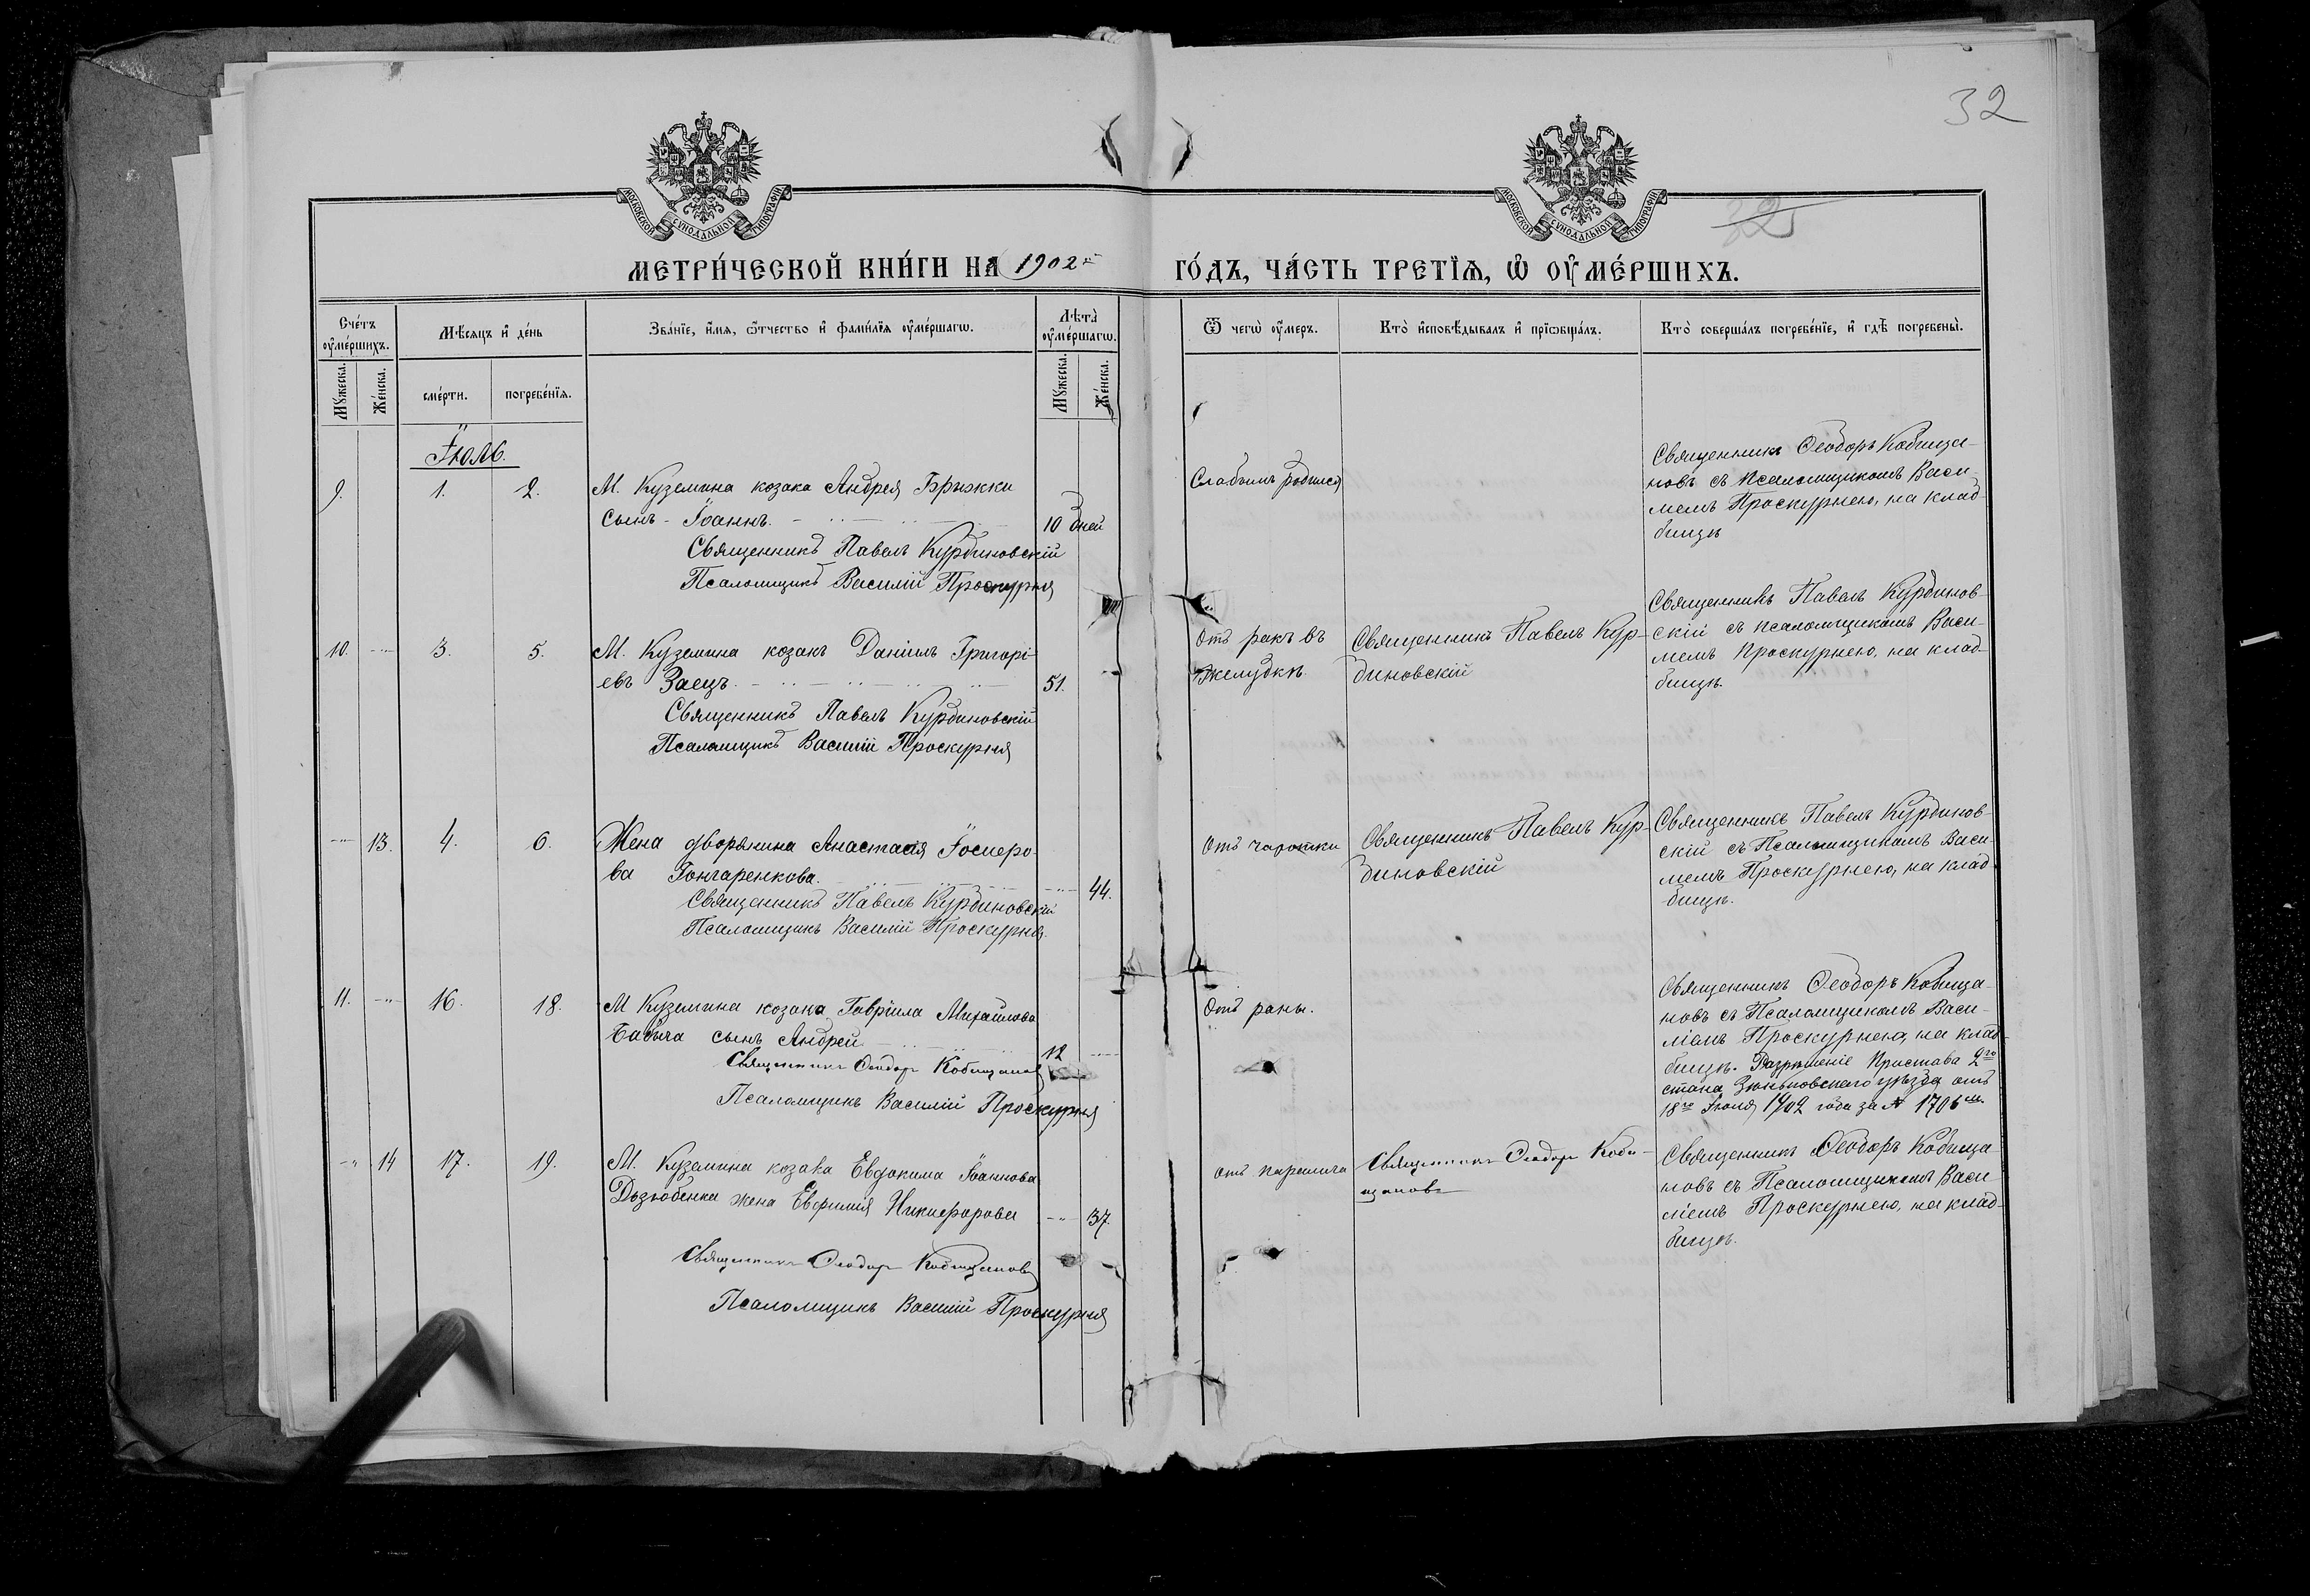 32
МОСКОВСКОЙ СУНОДАЛЬНОЙ ТИПОГРАФІИ
МОСКОВСКОЙ СУНОДАЛЬНОЙ ТИПОГРАФІИ
32
МЕТРИ́ЧЕСКОЙ КНИ́ГИ НА 1902й
ГО́ДЪ, ЧА́СТЬ ТРЕТІѦ, Ѡ ОУ҆МЕ́РШИХЪ.
Сче́тъ оу҆ме́ршихъ.
Мѣ́сяцъ и҆ де́нь
Зва́нїе, и҆́мя, ѻ҆́тчество и҆ фами́лїя оу҆ме́ршагѡ.
Лѣ̑та оу҆ме́ршагѡ.
Ѿ чегѡ̀ оу҆́меръ.
Кто̀ и҆сповѣ́дывалъ и҆ прїѡбща́лъ.
Кто̀ соверша́лъ погребе́нїе, и҆ гдѣ̀ погребены̀.
Мꙋ́жеска.
Же́нска.
сме́рти.
погребе́нїя.
Мꙋ́жеска.
Же́нска.
Іюль.
9.
1.
2.
М. Куземина козака Андрея Брижки
сынъ - Іоаннъ.
10 дней
Священникъ Павелъ Курдиновскій
Псаломщикъ Василій Проскурня
Слабымъ родился
Священникъ Ѳеодоръ Кобища-
новъ съ псаломщикомъ Васи-
ліемъ Проскурнею, на клад-
бищѣ
10.
3.
5.
М. Куземина козакъ Даніилъ Григорі-
евъ Заецъ.
51.
Священникъ Павелъ Курдиновскій
Псаломщикъ Василій Проскурня
Отъ ракъ въ
желудкѣ
Священникъ Павелъ Кур-
диновскій
Священникъ Павелъ Курдинов-
скій съ псаломщикомъ Васи-
ліемъ Проскурнею, на клад-
бищѣ.
13.
4.
6.
Жена дворянина Анастасія Іосифо-
ва Гончаренкова.
44.
Священникъ Павелъ Курдиновскій
Псаломщикъ Василій Проскурня.
Отъ чахотки
Священникъ Павелъ Кур-
диновскій
Священникъ Павелъ Курдинов-
скій съ Псаломщикомъ Васи-
ліемъ Проскурнею, на клад-
бищѣ.
11.
16.
18.
М Куземина козака Гавріила Михаилова
Бабича сынъ Андрей
12
Священникъ Ѳеодоръ Кобищановъ
Псаломщикъ Василій Проскурня
Отъ раны.
Священникъ Ѳеодоръ Кобища-
новъ съ Псаломщикомъ Васи-
ліемъ Проскурнею, на клад-
бищѣ. Разрѣшеніе Пристава 2го
стана Зѣньковскаго уѣзда отъ
18го Іюля 1902 года за № 1706мъ.
14
17.
19.
М. Куземина козака Евдокима Іоаннова
Дзюбенка жена Евфимія Никифорова
37
Священникъ Ѳеодоръ Кобищановъ
Псаломщикъ Василій Проскурня
отъ паралича
Священникъ Ѳеодоръ Коби-
щановъ
Священникъ Ѳеодоръ Кобища
новъ съ Псаломщикомъ Васи-
ліемъ Проскурнею, на клад-
бищѣ.